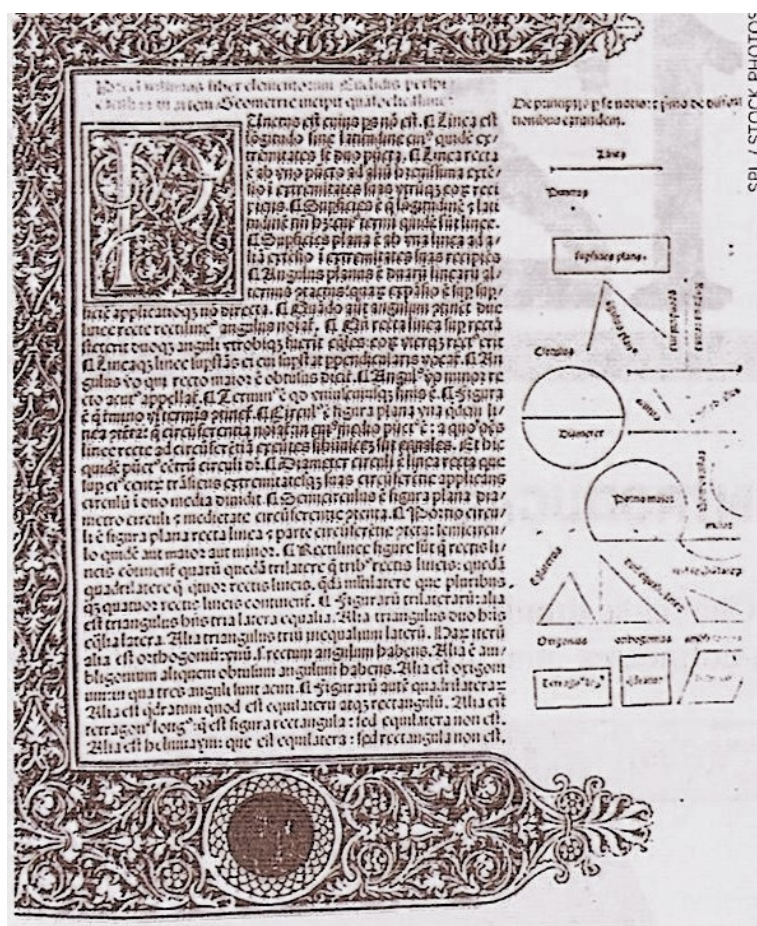 Preclarissimus liber elementorum Euclidis perspi
cacissimi: in artem Geometrie incipit quafoelicissime:
Punctus est cuius ps nõ est. ¶ Linea est
lõgitudo sine latitudine cuiꝰ quidẽ ex/
tremitates sũt duo pũcta. ¶ Linea recta
ẽ ab vno pũcto ad aliũ breuissima extẽ/
sio ĩ extremitates suas vtrũqꝫ eoꝝ reci
piens. ¶ Supficies ẽ q̃ lõgitudinẽ ⁊ lati
tudinẽ tñ hꝫ: cuiꝰ termi quidẽ sũt linee.
¶ Supficies plana ẽ ab vna linea ad a/
liã extẽsio ĩ extremitates suas recipiẽs
¶ Angulus planus ẽ duarũ linearũ al/
ternus ꝯtactus: quaꝝ expãsio ẽ sup sup/
ficiẽ applicatioqꝫ nõ directa. ¶ Quãdo aũt angulum ꝯtinẽt due
linee recte rectilineꝰ angulus noiat̃. ¶ Qñ recta linea sup rectã
steterit duoqꝫ anguli vtrobiqꝫ fuerit eq̃les: eoꝝ vterqꝫ rectꝰ erit
¶ Lineaqꝫ linee supstãs ei cui supstat ppendicularis vocat̃. ¶ An
gulus vo qui recto maior ẽ obtusus dicit̃. ¶ Angulꝰ vo minor re
cto acutꝰ appellat̃. ¶ Terminꝰ ẽ qd vniuscuiusqꝫ finis ẽ. ¶ Figura
ẽ q̃ tmino vl terminis ꝯtinet̃. ¶ Circulꝰ ẽ figura plana vna qdem li/
nea ꝯtẽta: q̃ circũferentia noiat̃: in cuiꝰ medio pũctꝰ ẽ: a quo oẽs
linee recte ad circũferẽtiã exeũtes sibiinuicẽ sũt equales. Et hic
quidẽ pũctꝰ cẽtrũ circuli dr̃. ¶ Diameter circuli ẽ linea recta que
sup eiꝰ centꝝ trãsiens extremitatesqꝫ suas circũferẽtie applicans
circulũ ĩ duo media diuidit. ¶ Semicirculus ẽ figura plana dia/
metro circuli ⁊ medietate circũferentie ꝯtenta. ¶ Portio circu/
li ẽ figura plana recta linea ⁊ parte circũferẽtie ꝯtẽta: semicircu/
lo quidẽ aut maior aut minor. ¶ Rectilinee figure sũt q̃ rectis li/
neis cõtinent̃ quarũ quedã trilatere q̃ tribꝰ rectis lineis: quedã
quadrilatere q̃ qtuor rectis lineis. qdã mĩtilatere que pluribus
qꝫ quatuor rectis lineis continent̃. ¶ Figurarũ trilaterarũ: alia
est triangulus hñs tria latera equalia. Alia triangulus duo hñs
eq̃lia latera. Alia triangulus triũ inequalium laterũ. Haꝝ iterũ
alia est orthogoniũ: vnũ .s. rectum angulum habens. Alia ẽ am/
bligonium aliquem obtusum angulum habens. Alia est oxigoni
um: in qua tres anguli sunt acuti. ¶ Figurarũ autẽ quadrilateraꝝ
Alia est q̃dratum quod est equilaterũ atqꝫ rectangulũ. Alia est
tetragonꝰ longꝰ: q̃ est figura rectangula: sed equilatera non est.
Alia est helmuaym: que est equilatera: sed rectangula non est.
De principijs p se notis: ⁊ p̃mo de diffini
tionibus earundem.
Linea
Punctus
Supficies plana.
Circulus
Diameter
Portio maior
Oxigonius
SPL / STOCK PHOTOS